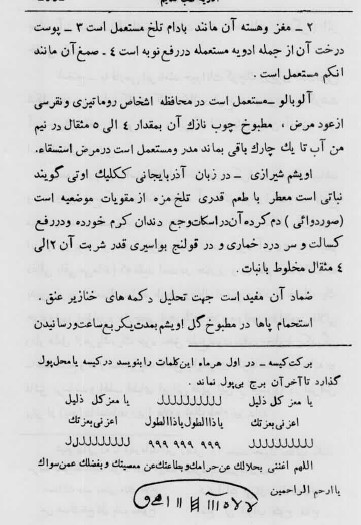 ۲ ـ مغز وهسته آن مانند بادام تلخ مستعمل است ۳ ـ پوست
درخت آن از جمله ادویه مستعمله دررفع نوبه است ٤ ـ صمغ آن مانند
انکم مستعمل است .
آلوبالو ـ مستعمل است درمحافظه اشخاص روماتیزی ونقرسی
ازعود مرض ، مطبوخ چوب نازك آن بمقدار ٤ الی ۵ مثقال در نیم
من آب تا یك چارك باقی بماند مدر ومستعمل است درمرض استسقاء.
اویشم شیرازی ـ در زبان آذربایجانی ککلیك اوتی گویند
نباتی است معطر با طعم قدری تلخ مزه از مقویات موضعیه است
(صوردوائی) دم کرده آن دراسکات وجع دندان کرم خورده ودررفع
کسالت و سر درد خماری و در قولنج بواسیری قدر شربت آن ۲ الی
٤ مثقال مخلوط بانبات .
ضماد آن مفید است جهت تحلیل دکمه های خنازیر عنق .
استحمام پاها در مطبوخ گل اویشم بمدت یکربع ساعت ورسانیدن
برکت کیسه ـ در اول هرماه این کلمات را بنویسد درکیسه یا محل پول
گذارد تا آخر آن برج بی پول نماند .
یا معز کل ذلیل لللللللللل یا معز کل ذلیل
اعزنی بعزتك یاذاالطول یاذاالطول اعزنی بعزتك
لللللللللل ۹۹۹ ۹۹۹ ۹۹۹ لللللللللل
اللهم اغننی بحلالك عن حرامك وبطاعتك عن معصیتك وبفضلك عمن سواك
یا ارحم الراحمین